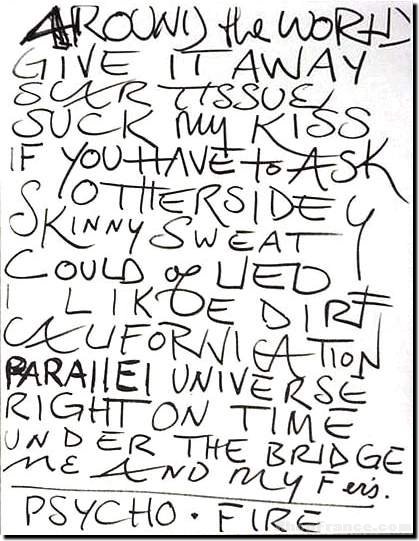 AROUND the WORLD
GIVE IT AWAY
SCAR TISSUE
SUCK my KISS
IF YOU HAVE to ASK
OTHERSIDE
SKINNY SWEATY
COULD of LIED
I LIKE DIRT
CALIFORNICATION
PARAllEl UNIVERSE
RIGHT ON TIME
UNDER THE BRIDGE
ME AND MY Fers.
PSYCHO · FIRE